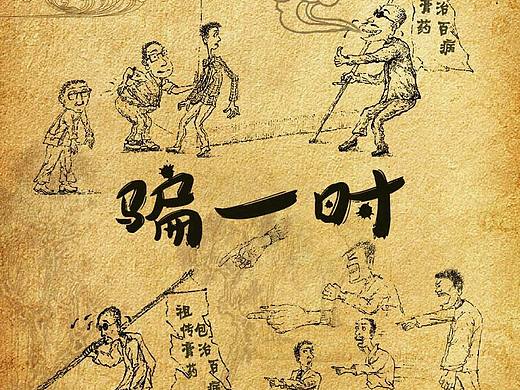 膏药
治百病
骗一时
祖传膏药
包治百病